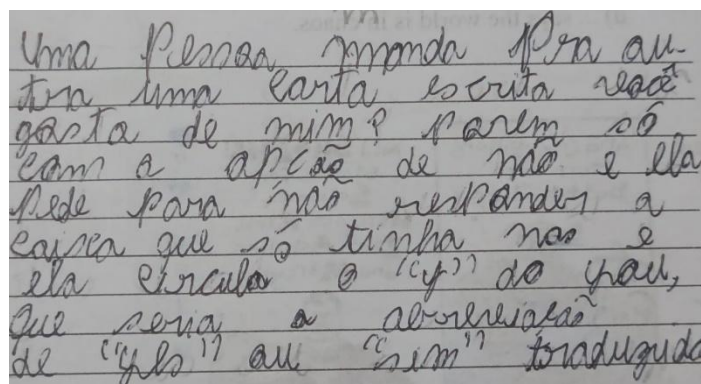 Uma Pessoa manda Pra ou-
tra uma carta escrita você
gosta de mim? Porem só
com a opção de não e ela
Pede para não responder a
caixa que só tinha nao e
ela circula o "y" do you,
que seria a abreveiação
de "yes" ou "sim" traduzudo